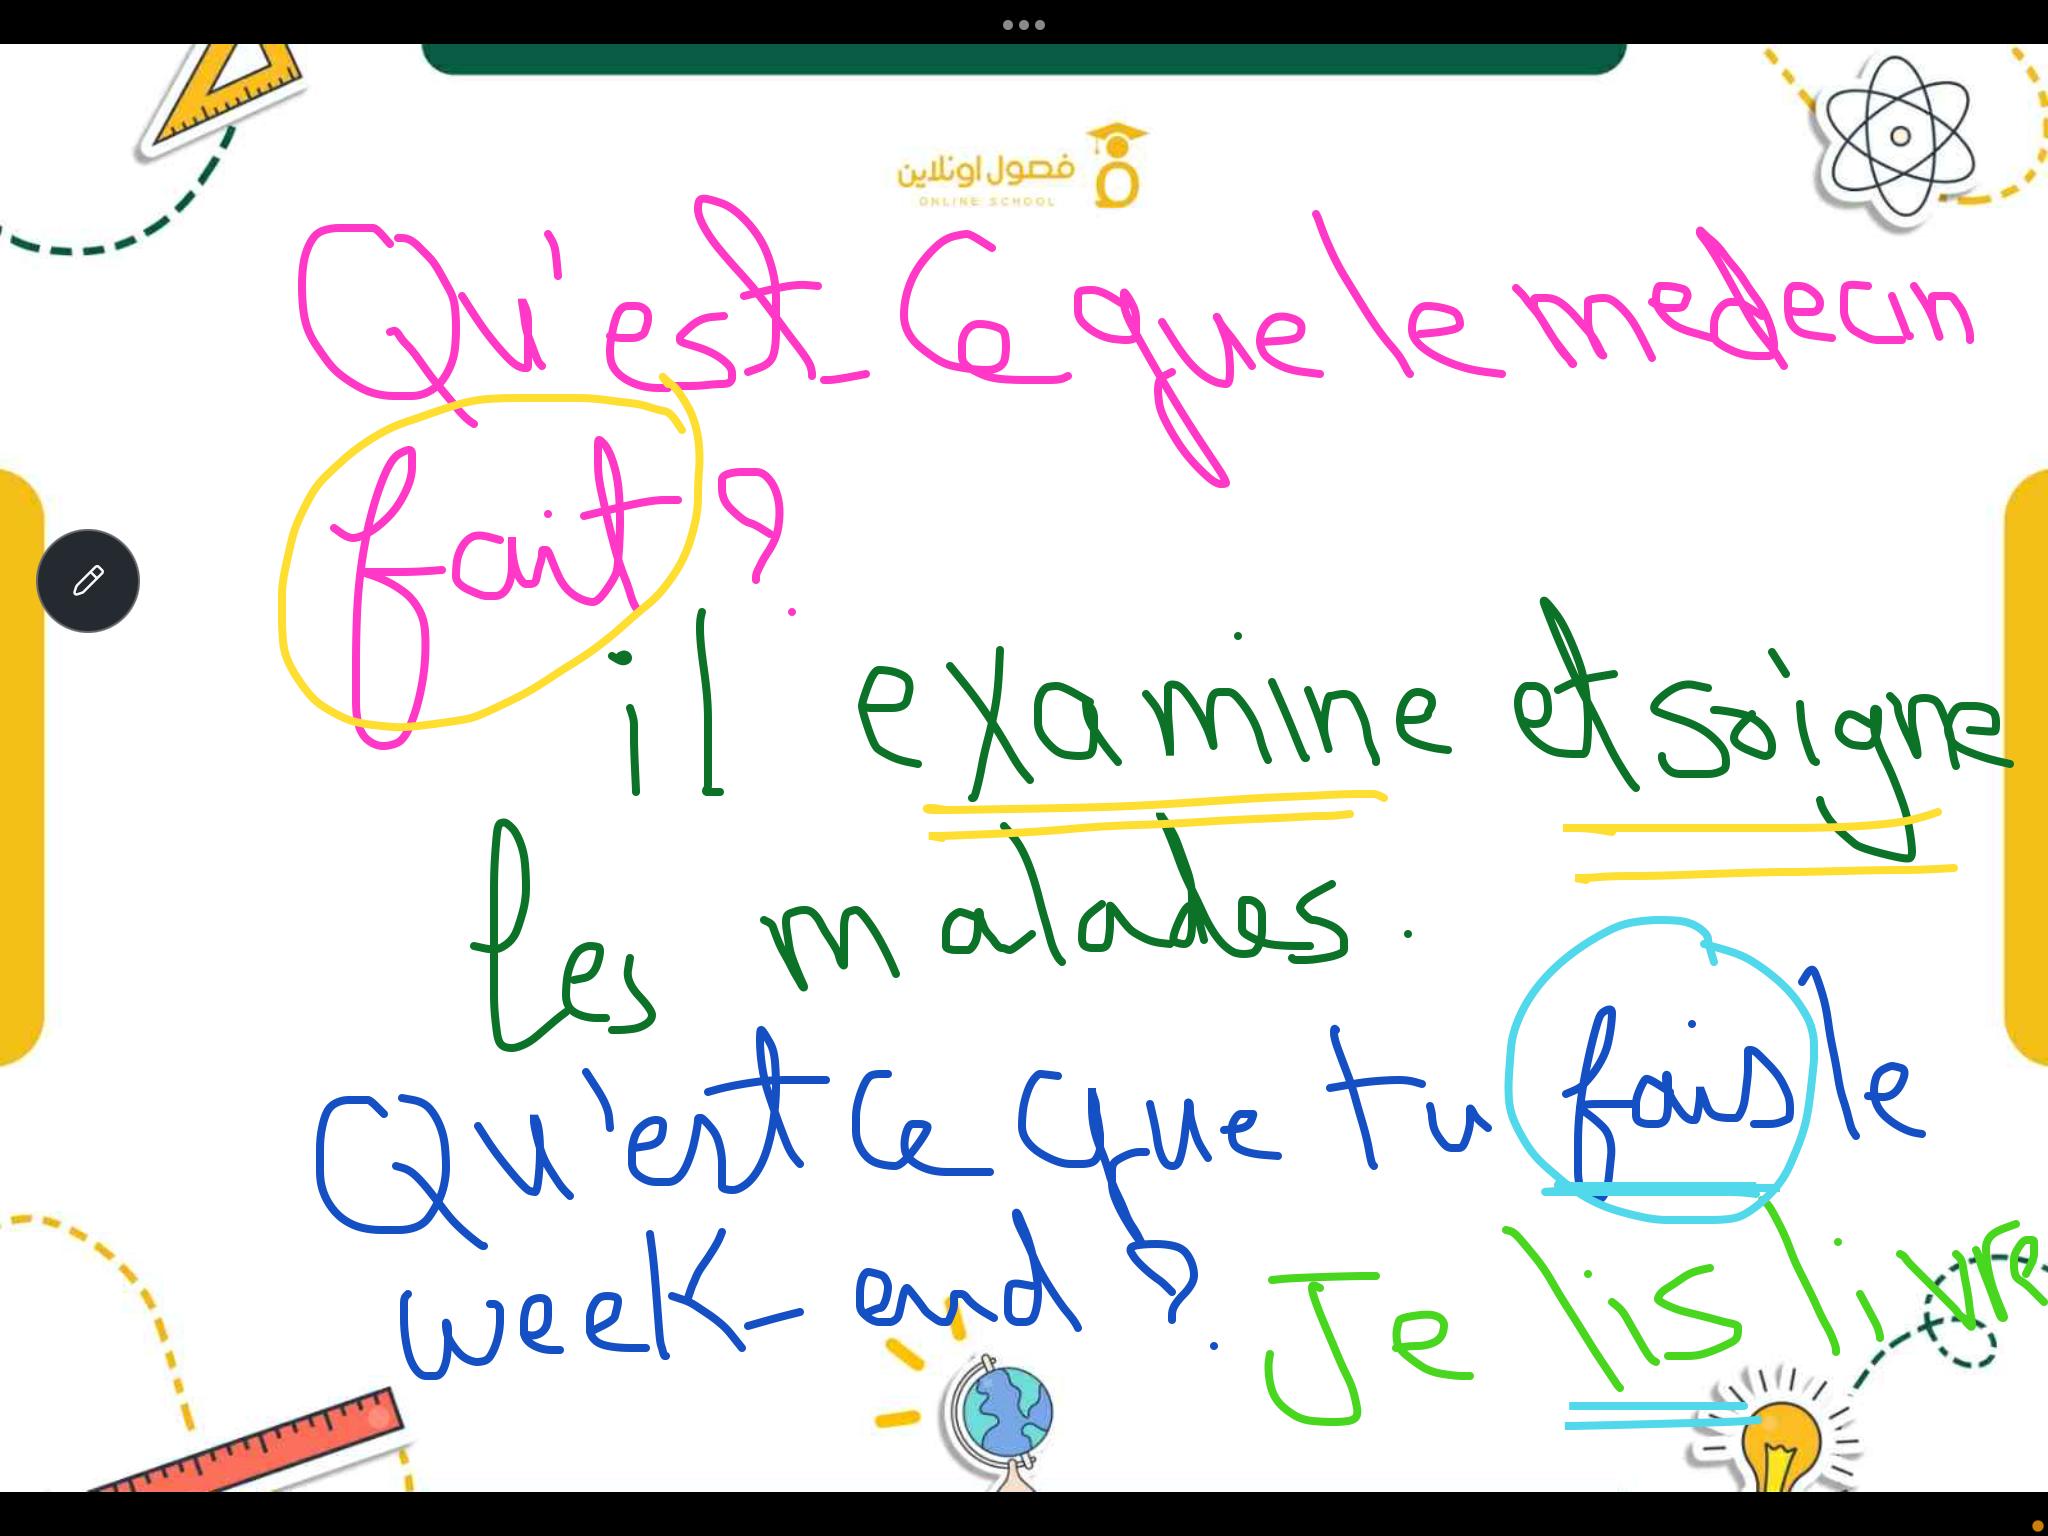 فصول اونلاين
ONLINE SCHOOL
Qu'est-Ce que le medecin
fait?
il examine et soigne
les malades.
Qu'est ce que tu fais le
week-end?
Je lis livre